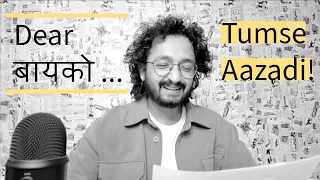 Dear
बायको ...
Tumse
Aazadi!